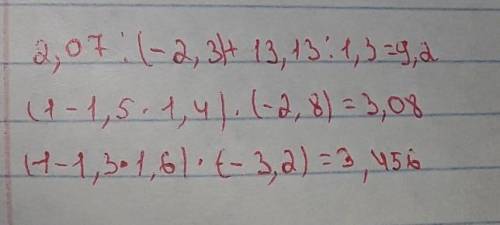 2,07:(-2,3)+13,13:1,3=9,2
(1-1,5·1,4)·(-2,8)=3,08
(1-1,3·1,6)·(-3,2)=3,456